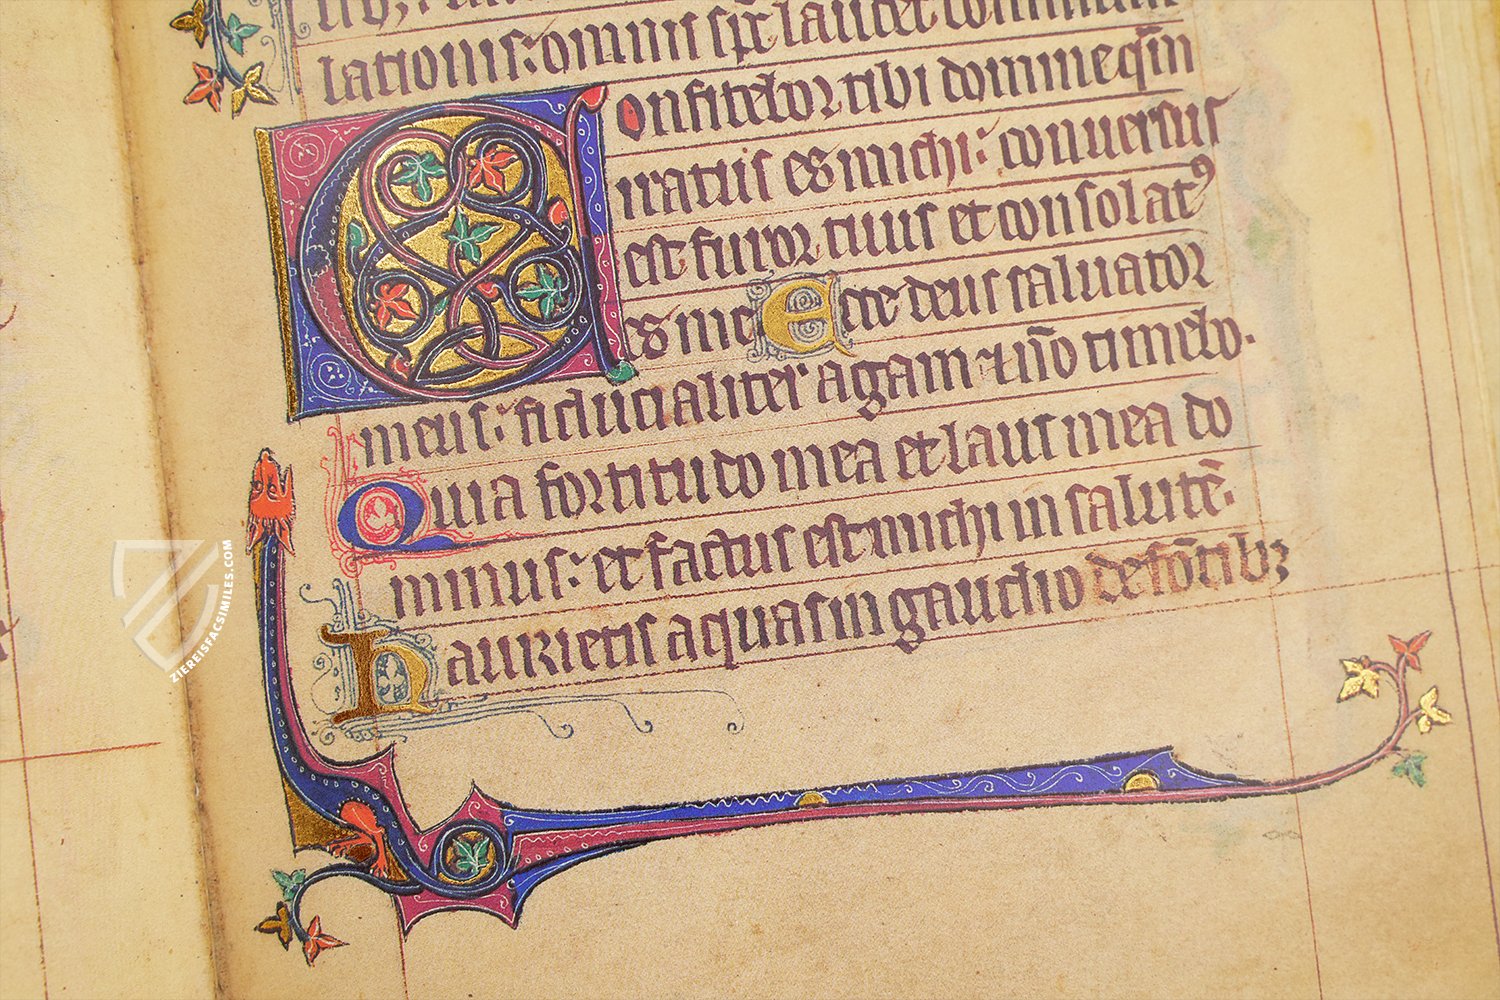 lationis: omnis sp̅c laudet dominum
Confitebor tibi domine qm̅
iratus es michi: conuersus
est furor tuus et consolatꝰ
es me Ecce deus saluator
meus: fiducialiter agam ⁊ nō timebo.
Quia fortitudo mea et laus mea do
minus: et factus est michi in salutē.
Haurietis aquas in gaudio de fōtibꝫ
ZIEREISFACSIMILES.COM